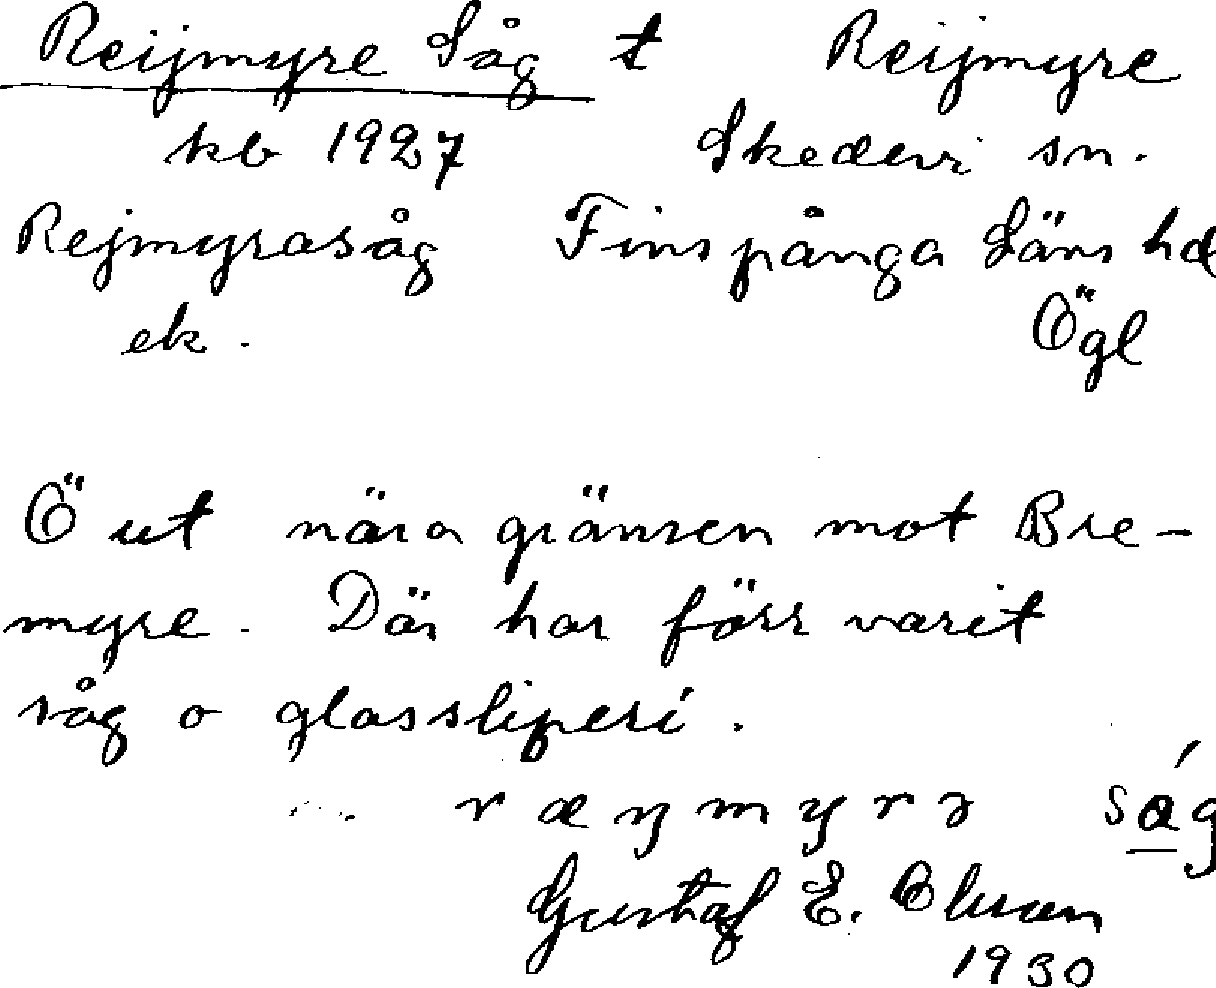 Reijmyre Såg t Reijmyre
kb 1927 Skedevi sn.
Rejmyrasåg Finspånga Läns hd
ek. Ögl
Ö ut nära gränsen mot Bre-
myre. Där har förr varit
såg o glassliperi.
såg
Gustaf E. Olson
1930